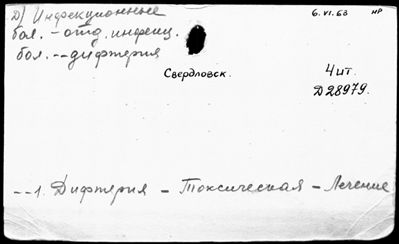 Д) Инфекционные
бол. - отд. инфекц.
бол. -- дифтерия
6.VI.63 НР
Свердловск.
4 шт.
Д28979.
--1. Дифтерия - Токсическая - Лечение